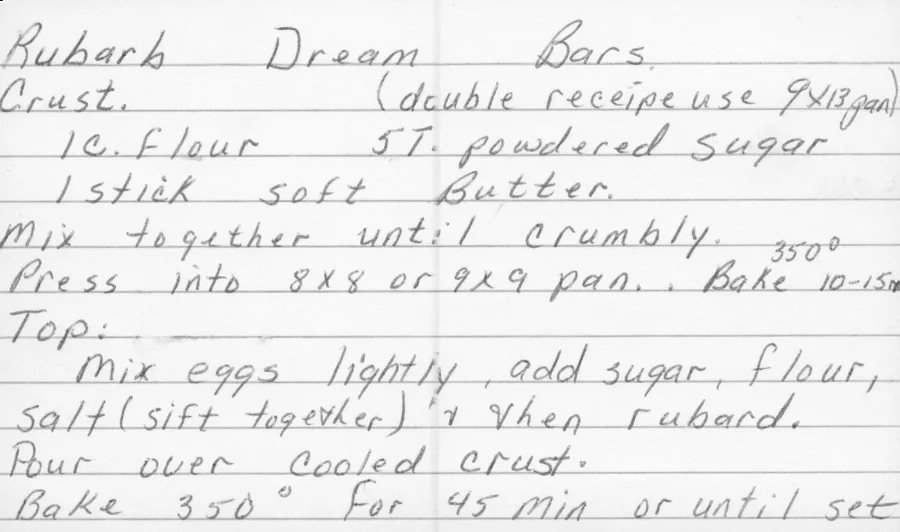 Rubarb Dream Bars.
Crust. (double receipe use 9x13 pan)
1 C. flour 5T. powdered sugar
1 stick soft Butter.
Mix together until crumbly.
350°
Press into 8x8 or 9x9 pan. . Bake 10-15m
Top:
Mix eggs lightly, add sugar, flour,
salt (sift together) & then rubard.
Pour over cooled crust.
Bake 350° for 45 min or until set